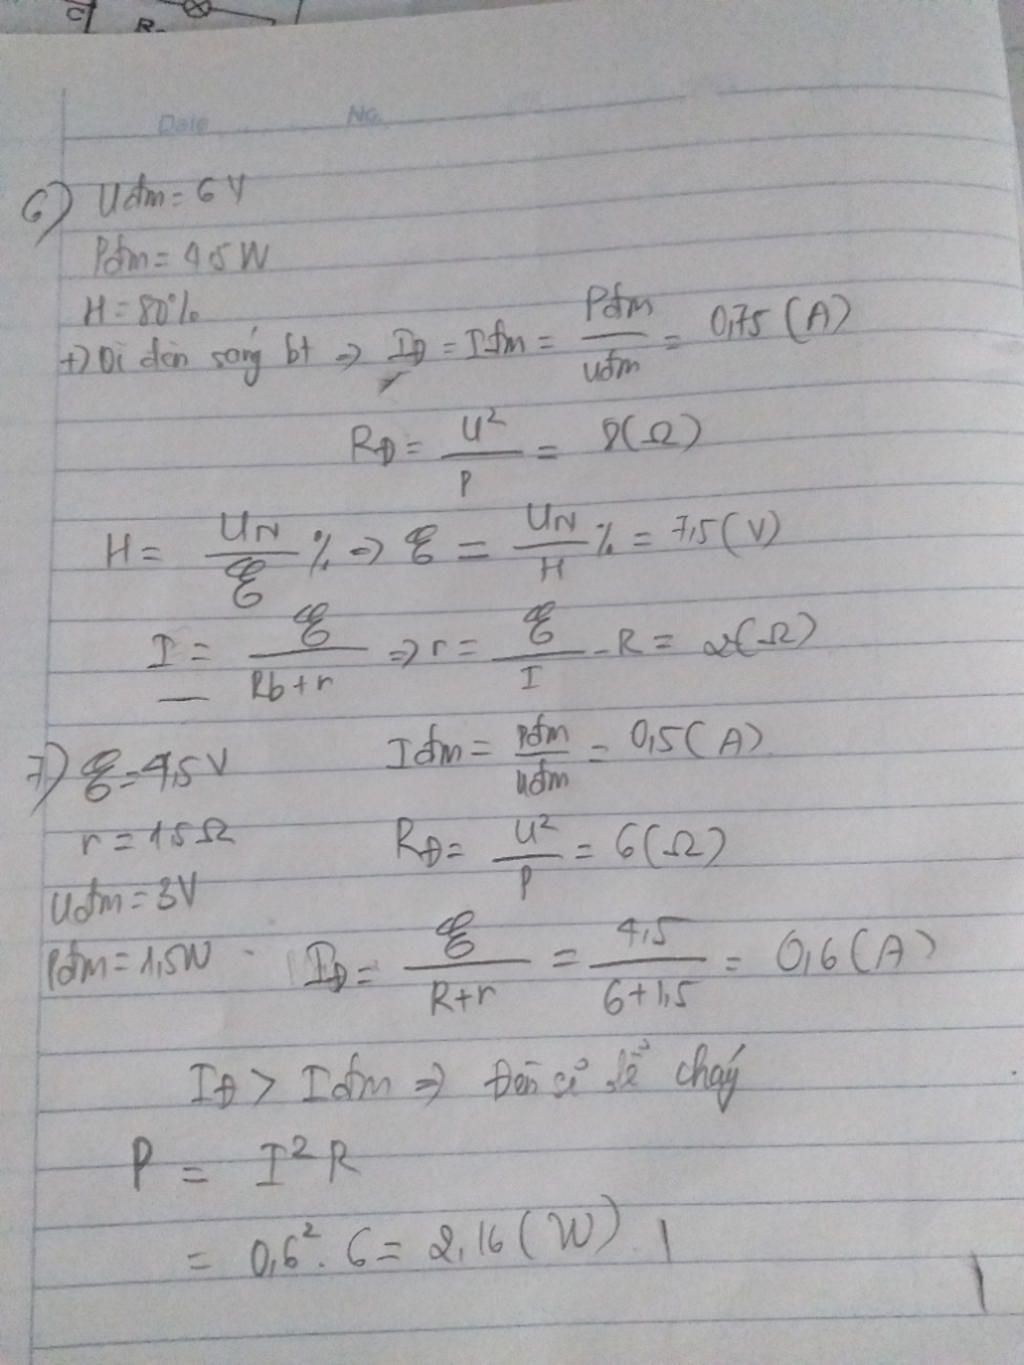 Date No.
6) Uđm = 6 V
Pđm = 4,5 W
H = 80%
+) Vì đèn sáng bt => IĐ = Iđm = Pđm / Uđm = 0,75 (A)
RĐ = U² / P = 8 (Ω)
H = UN / ℰ % => ℰ = UN / H % = 7,5 (V)
I = ℰ / Rb + r => r = ℰ / I - R = 2 (Ω)
7) ℰ = 4,5 V Iđm = Pđm / Uđm = 0,5 (A)
r = 1,5 Ω RĐ = U² / P = 6 (Ω)
Uđm = 3V
Pđm = 1,5W IĐ = ℰ / R + r = 4,5 / 6 + 1,5 = 0,6 (A)
IĐ > Iđm => Đèn cháy
P = I² R
= 0,6² . 6 = 2,16 (W)